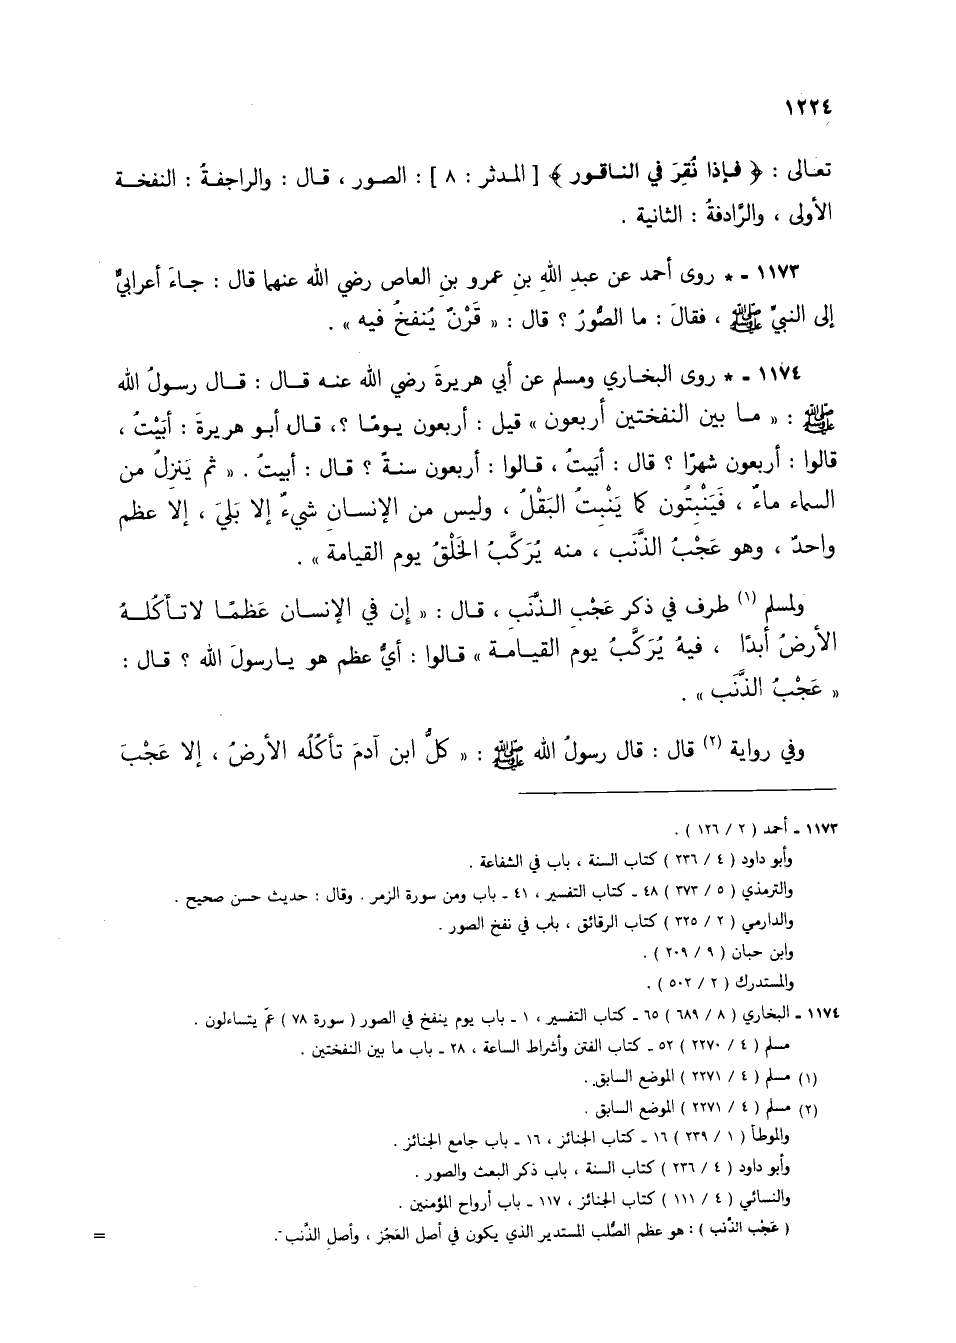 ١٢٢٤
تعالى : ﴿ فإذا نُقِرَ في الناقور ﴾ [ المدثر : ٨ ] : الصور ، قال : والراجفةُ : النفخة
الأولى ، والرَّادفةُ : الثانية .
١١٧٣ - * روى أحمد عن عبدِ اللهِ بنِ عمرو بنِ العاص رضي الله عنهما قال : جاءَ أعرابيٌّ
إلى النبيِّ ﷺ ، فقالَ : ما الصُّورُ ؟ قال : « قَرْنٌ يُنفخُ فيه » .
١١٧٤ - * روى البخاري ومسلم عن أبي هريرةَ رضي الله عنه قال : قال رسولُ الله
ﷺ : « ما بين النفختين أربعون » قيل : أربعون يومًا ؟، قال أبو هريرةَ : أَبَيْتُ ،
قالوا : أربعون شهرًا ؟ قال : أبَيتُ ، قالوا : أربعون سنةً ؟ قال : أبيتُ . « ثم يَنزلُ من
السماء ماءٌ ، فَيَنْبتُون كما يَنْبتُ البَقْلُ ، وليس من الإنسانِ شيءٌ إلا بَليَ ، إلا عظم
واحدٌ ، وهو عَجْبُ الذَّنَب ، منه يُرَكَّبُ الخَلْقُ يوم القيامة » .
ولمسلم (١) طرف في ذكر عَجْبِ الذَّنَبِ ، قال : « إن في الإنسان عَظمًا لاتأكُلهُ
الأرضُ أبدًا ، فيهُ يُرَكَّبُ يوم القيامة » قالوا : أيُّ عظم هو يارسولَ الله ؟ قال :
« عَجْبُ الذَّنَب » .
وفي رواية (٢) قال : قال رسولُ الله ﷺ : « كلُّ ابن آدمَ تأكُلُه الأرضُ ، إلا عَجْبَ
١١٧٣ - أحمد ( ٢ / ١٢٦ ) .
وأبو داود ( ٤ / ٢٣٦ ) كتاب السنة ، باب في الشفاعة .
والترمذي ( ٥ / ٣٧٣ ) ٤٨ - كتاب التفسير ، ٤١ - باب ومن سورة الزمر . وقال : حديث حسن صحيح .
والدارمي ( ٢ / ٣٢٥ ) كتاب الرقائق ، باب في نفخ الصور .
وابن حبان ( ٩ / ٢٠٩ ) .
والمستدرك ( ٢ / ٥٠٢ ) .
١١٧٤ - البخاري ( ٨ / ٦٨٩ ) ٦٥ - كتاب التفسير ، ١ - باب يوم ينفخ في الصور ( سورة ٧٨ ) عمّ يتساءلون .
مسلم ( ٤ / ٢٢٧٠ ) ٥٢ - كتاب الفتن وأشراط الساعة ، ٢٨ - باب ما بين النفختين .
(١) مسلم ( ٤ / ٢٢٧١ ) الموضع السابق .
(٢) مسلم ( ٤ / ٢٢٧١ ) الموضع السابق .
والموطأ ( ١ / ٢٣٩ ) ١٦ - كتاب الجنائز ، ١٦ - باب جامع الجنائز .
وأبو داود ( ٤ / ٢٣٦ ) كتاب السنة ، باب ذكر البعث والصور .
والنسائي ( ٤ / ١١١ ) كتاب الجنائز ، ١١٧ - باب أرواح المؤمنين .
( عَجْب الذَّنب ) : هو عظم الصُّلب المستدير الذي يكون في أصل العَجُز ، وأصلِ الذَّنب . =